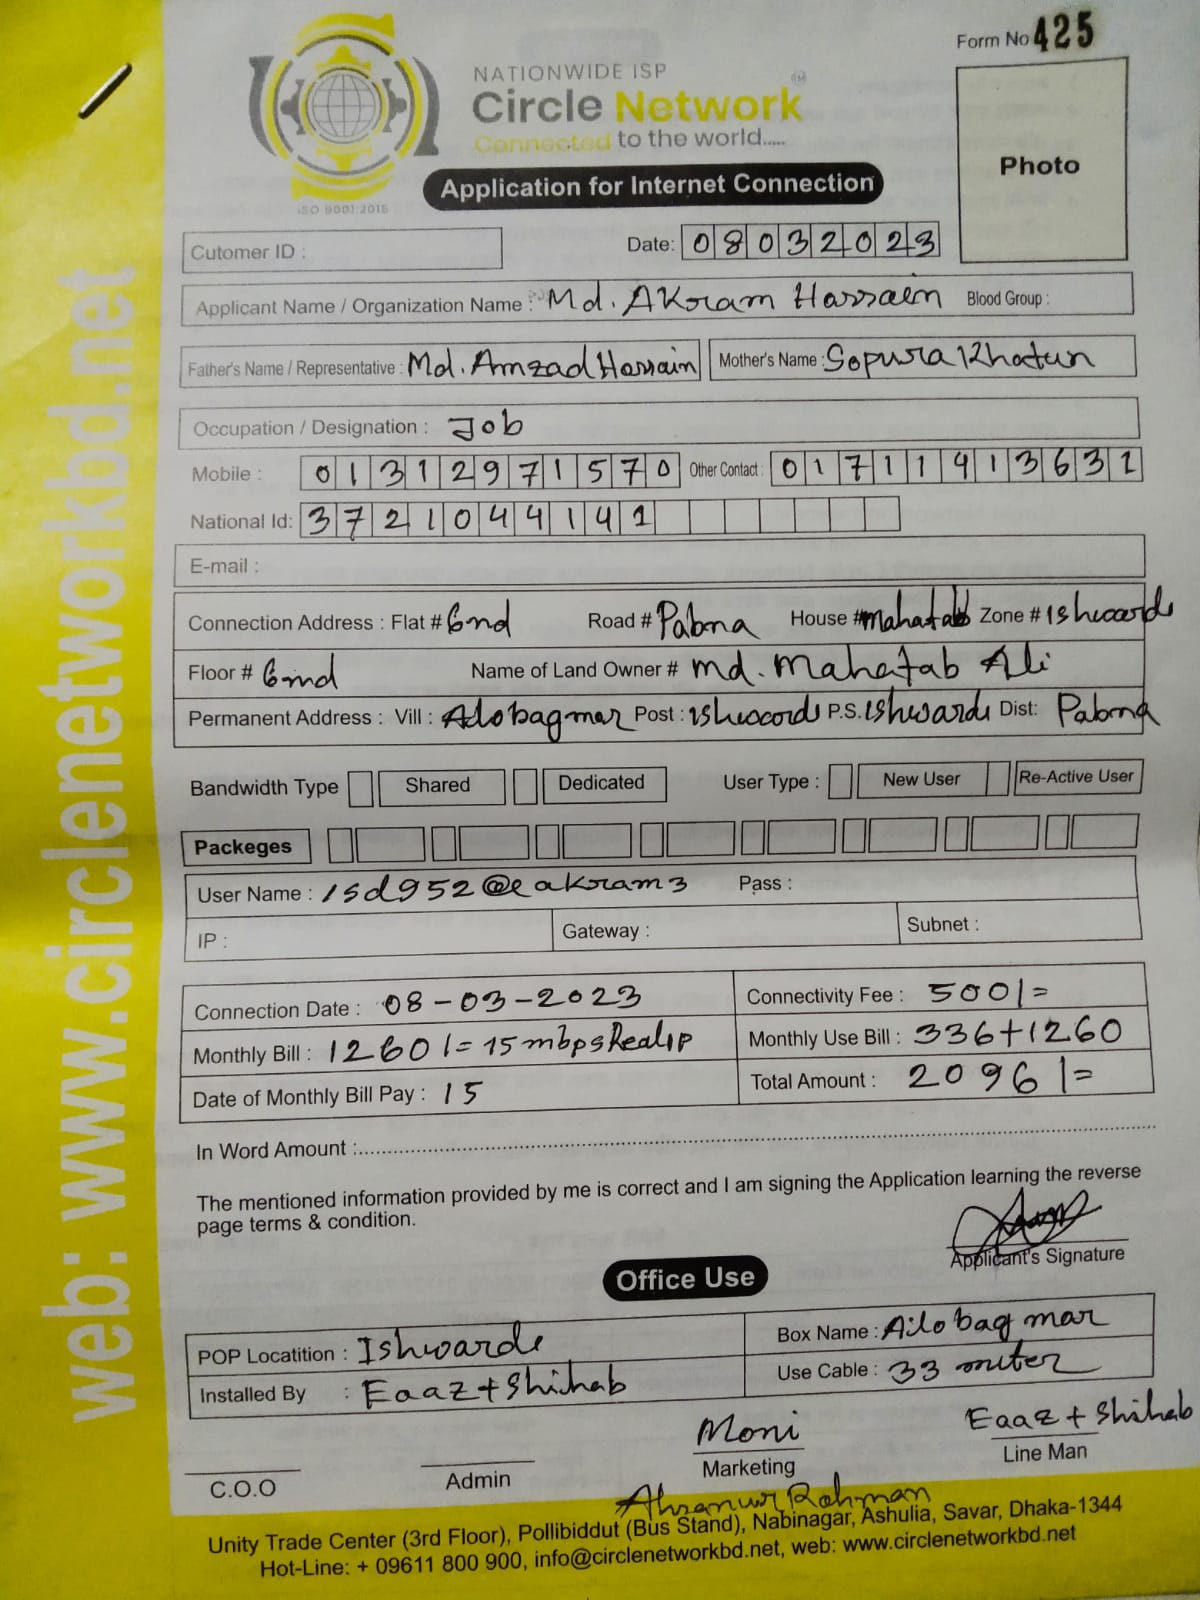 Form No 425
NATIONWIDE ISP
Circle Network
Connected to the world.....
ISO 9001:2015
Application for Internet Connection
Photo
Cutomer ID :
Date: 08032023
Applicant Name / Organization Name : Md. AKram Hossain Blood Group :
Father's Name / Representative : Md. Amzad Hossain Mother's Name : Sopura Khatun
Occupation / Designation : Job
Mobile : 01312971570 Other Contact : 01711413632
National Id: 3721044141
E-mail :
Connection Address : Flat # Gnd Road # Pabna House # mahatab Zone # Ishwardi
Floor # Gnd Name of Land Owner # md. mahatab Ali
Permanent Address : Vill : Post : Ishwardi P.S. Ishwardi Dist: Pabna
Bandwidth Type Shared Dedicated User Type : New User Re-Active User
Packeges
User Name : isd952@eakram3 Pass :
IP : Gateway : Subnet :
Connection Date : 08-03-2023 Connectivity Fee : 500/=
Monthly Bill : 1260/= 15 mbps RealIP Monthly Use Bill : 336+1260
Date of Monthly Bill Pay : 15 Total Amount : 2096/=
In Word Amount :
The mentioned information provided by me is correct and I am signing the Application learning the reverse
page terms & condition.
Applicant's Signature
Office Use
POP Locatition : Ishwardi Box Name : Ailobag mor
Installed By : Eaaz + Shihab Use Cable : 33 miter
Moni Eaaz + Shihab
C.O.O Admin Marketing Line Man
Ahsanur Rahman
Unity Trade Center (3rd Floor), Pollibiddut (Bus Stand), Nabinagar, Ashulia, Savar, Dhaka-1344
Hot-Line: + 09611 800 900, info@circlenetworkbd.net, web: www.circlenetworkbd.net
web: www.circlenetworkbd.net